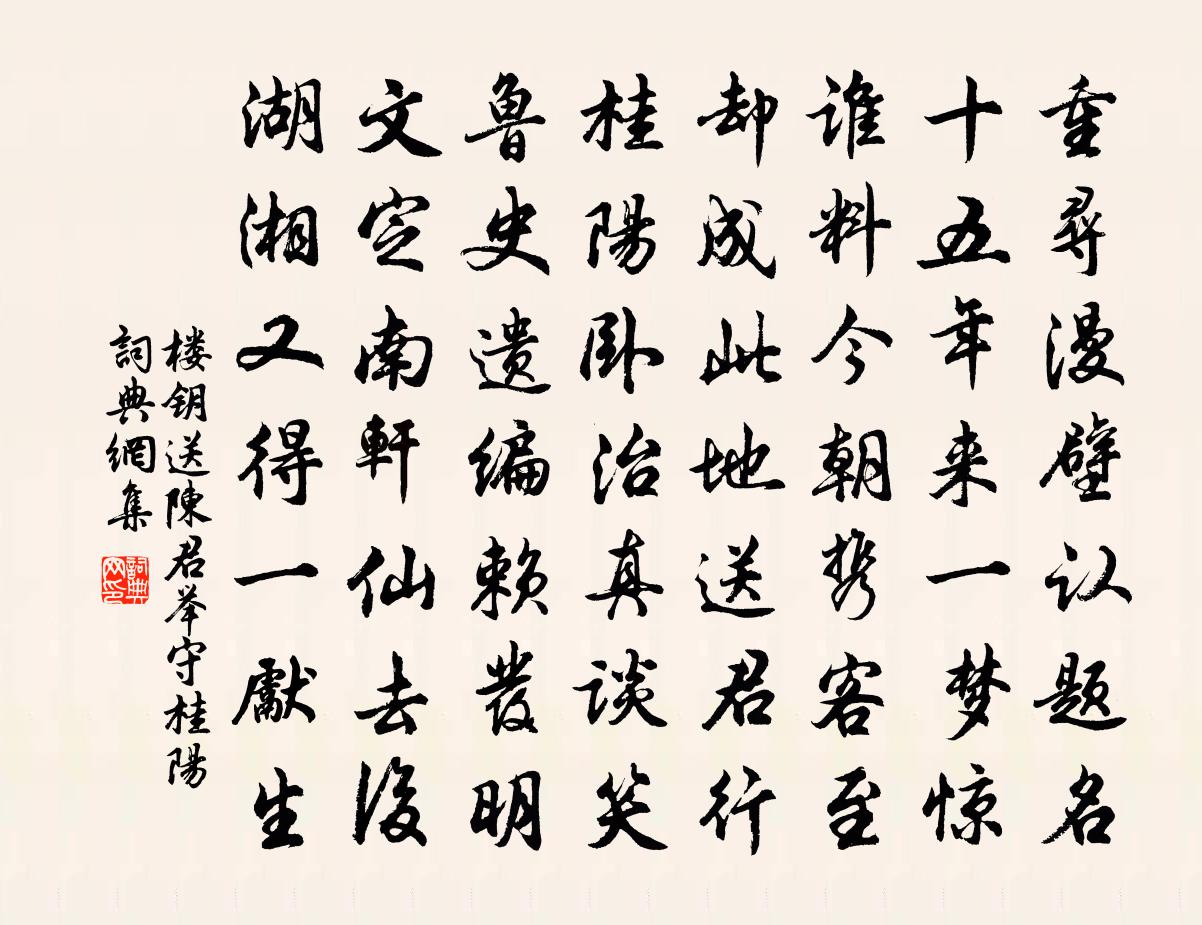 重尋漫壁认题名
十五年来一梦惊
谁料今朝携客至
却成此地送君行
桂陽卧治真谈笑
鲁史遗编赖發明
文定南軒仙去後
湖湘又得一獻生
楼钥送陳君举守桂陽
詞典網集
詞典网印